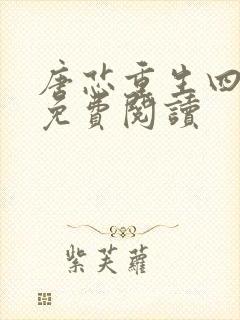 唐芯重生四
免費閱讀
紫芙蘿